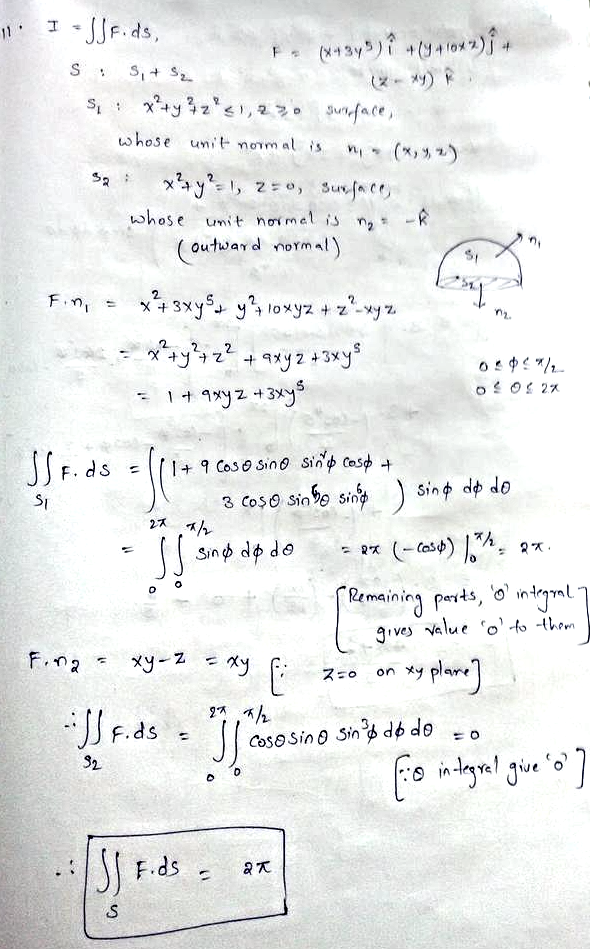 11. I = ∬F.ds, F = (x+3y⁵) î + (y+10xz) ĵ +
(z - xy) k̂.
S : S₁ + S₂
S₁ : x²+y²+z² ≤ 1, z ≥ 0 surface,
whose unit normal is n₁ = (x, y, z)
S₂ : x²+y² = 1, z = 0, surface,
whose unit normal is n₂ = -k̂
(outward normal)
S₁ n₁
S₂
n₂
F.n₁ = x²+3xy⁵+ y²+10xyz + z²-xyz
= x²+y²+z² + 9xyz + 3xy⁵
= 1 + 9xyz + 3xy⁵
0 ≤ φ ≤ π/2
0 ≤ θ ≤ 2π
∬_S₁ F.ds = ∬(1 + 9 cosθ sinθ sin²φ cosφ +
3 cosθ sin⁵θ sin⁶φ) sinφ dφ dθ
= ∫₀^2π ∫₀^π/2 sinφ dφ dθ = 2π (-cosφ) |₀^π/2 = 2π.
[Remaining parts, 'θ' integral
gives value '0' to them]
F.n₂ = xy-z = xy [∵ z=0 on xy plane]
∴ ∬_S₂ F.ds = ∫₀^2π ∫₀^π/2 cosθ sinθ sin³φ dφ dθ = 0
[∵ θ integral give '0']
∴ ∬_S F.ds = 2π